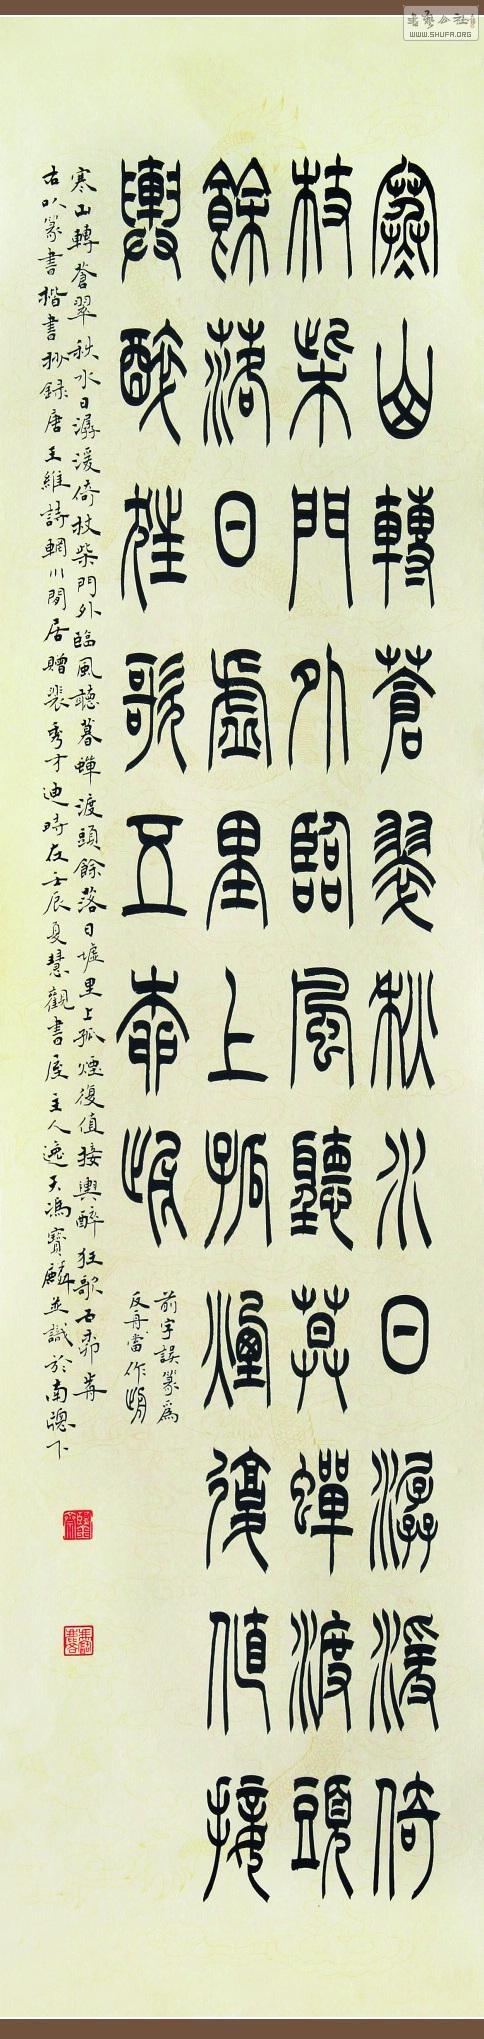 書藝公社
WWW.SHUFA.ORG
寒山轉蒼翠秋水日潺湲倚
杖柴門外臨風聽莫蟬渡頭
餘落日虛里上孤煙復值接
輿醉狂歌五柳前
前字誤篆為
反舟當作歬
寒山轉蒼翠秋水日潺湲倚杖柴門外臨風聽暮蟬渡頭餘落日墟里上孤煙復值接輿醉狂歌五柳歬
右以篆書楷書抄錄唐王維詩輞川閒居贈裴秀才迪時在壬辰夏慧觀書屋主人逸天馮寶麟並識於南窗下